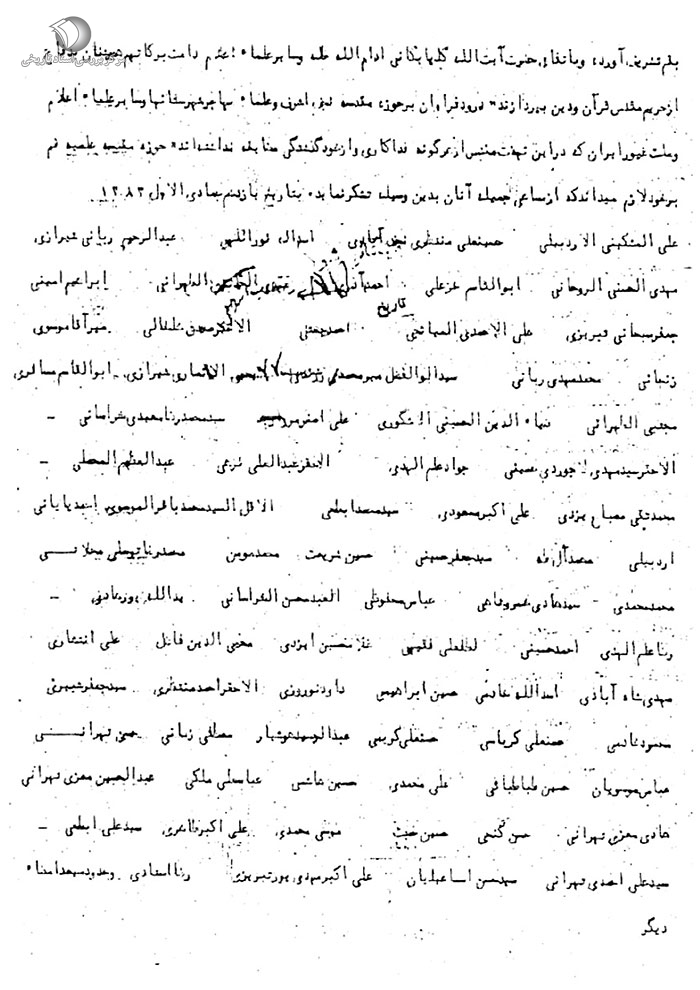 مرکز بررسی اسناد تاریخی
بقم تشریف آورده وماتفاق حضرت آیت الله گلپایگانی ادام الله ظله وسایرعلماء اعلام دامت برکاتهم همچنان بدفاع
ازحریم مقدس قرآن ودین بپردازند" درودفراوان برحوزه مقدسه نجف اشرف وعلماء مهاجرشهرستانها وسایرعلماء اعلام
وملت غیورایران که دراین نهضت مقدس ازهرگونه فداکاری وازخودگذشتگی مضایقه نداشته اند" حوزه مقدسه علمیه قم
برخودلازم میداندکه ازمساعی جمیله آنان بدین وسیله تشکرنماید. بتاریخ یازدهم جمادی الاول ۱۳۸۳
علی المشکینی الاردبیلی حسینعلی منتظری نجف آبادی اسدالله نوراللهی عبدالرحیم ربانی شیرازی
مهدی الحسنی الروحانی ابوالقاسم خزعلی احمد آذری الطهرانی ابراهیم امینی
جعفرسبحانی تبریزی علی الاحمدی المیانجی احمدجنتی الاحقرصادق خلخالی میرآقاموسوی
زنجانی محمدمهدی ربانی سیدابوالفضل میرمحمدی زرندی الانصاری شیرازی ابوالقاسم مسافری
مجتبی الطهرانی ضیاء الدین الحسینی اشکوری علی اصغرمروارید سیدمحمدرضاسعیدی خراسانی
الاحقرسیدمهدی حسینی جوادعلم الهدی الاحقرعبدالعلی عبدالعظیم المحصلی
محمدتقی مصباح یزدی علی اکبرمسعودی سیدمحمدابطحی الاقل السیدمحمدباقرالموسوی اسدپایانی
اردبیلی محمدآل طه سیدجعفرحسینی حسین شریعت محمدمومن محمدرضاتوسلی محلاتی
محمدمحمدی سیدهادی خسروشاهی عباس محفوظی العبدمحسن الخراسانی یدالله پورهادی
رضاعلم الهدی احمدحسینی لطفعلی فقیهی غلامحسین ایزدی محیی الدین فاضل علی افتخاری
مهدی شاه آبادی اسدالله خادمی حسین ابراهیمی داودنوروزی الاحقراحمدمنتظری سیدجعفرشبیری
محمودخادمی حسنعلی کرباسی حسنعلی کریمی عبدالمجیدهوشیار مصطفی زمانی حسن تهرانی
عباس موسویان حسین طباطبائی علی محمدی حسین هاشمی عباسعلی ملکی عبدالحسین معزی تهرانی
هادی معزی تهرانی حسن گنجی حسین محمدی علی اکبرطاهری سیدعلی ابطحی
سیدعلی احمدی تهرانی سیدحسن اسماعیلیان علی اکبرمهدی پورتبریزی رضااستادی وحدودسیصدامضاء
دیگر